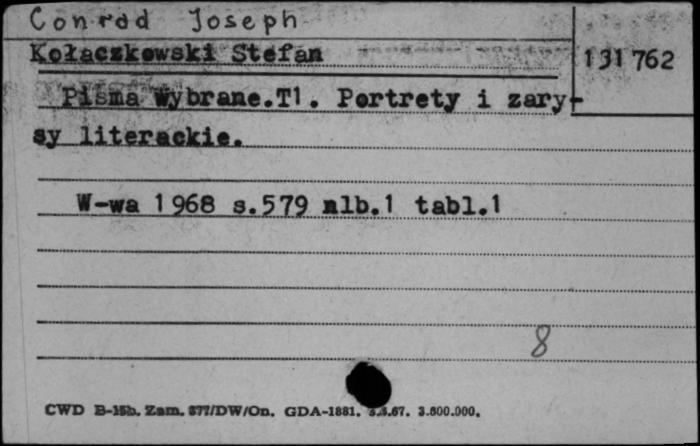 Conrad Joseph
Kołaczkowski Stefan
131 762
Pisma Wybrane.T1. Portrety i zary-
sy literackie.
W-wa 1968 s.579 nlb.1 tabl.1
8
CWD B-15b. Zam. 877/DW/On. GDA-1881. 3.3.67. 3.600.000.